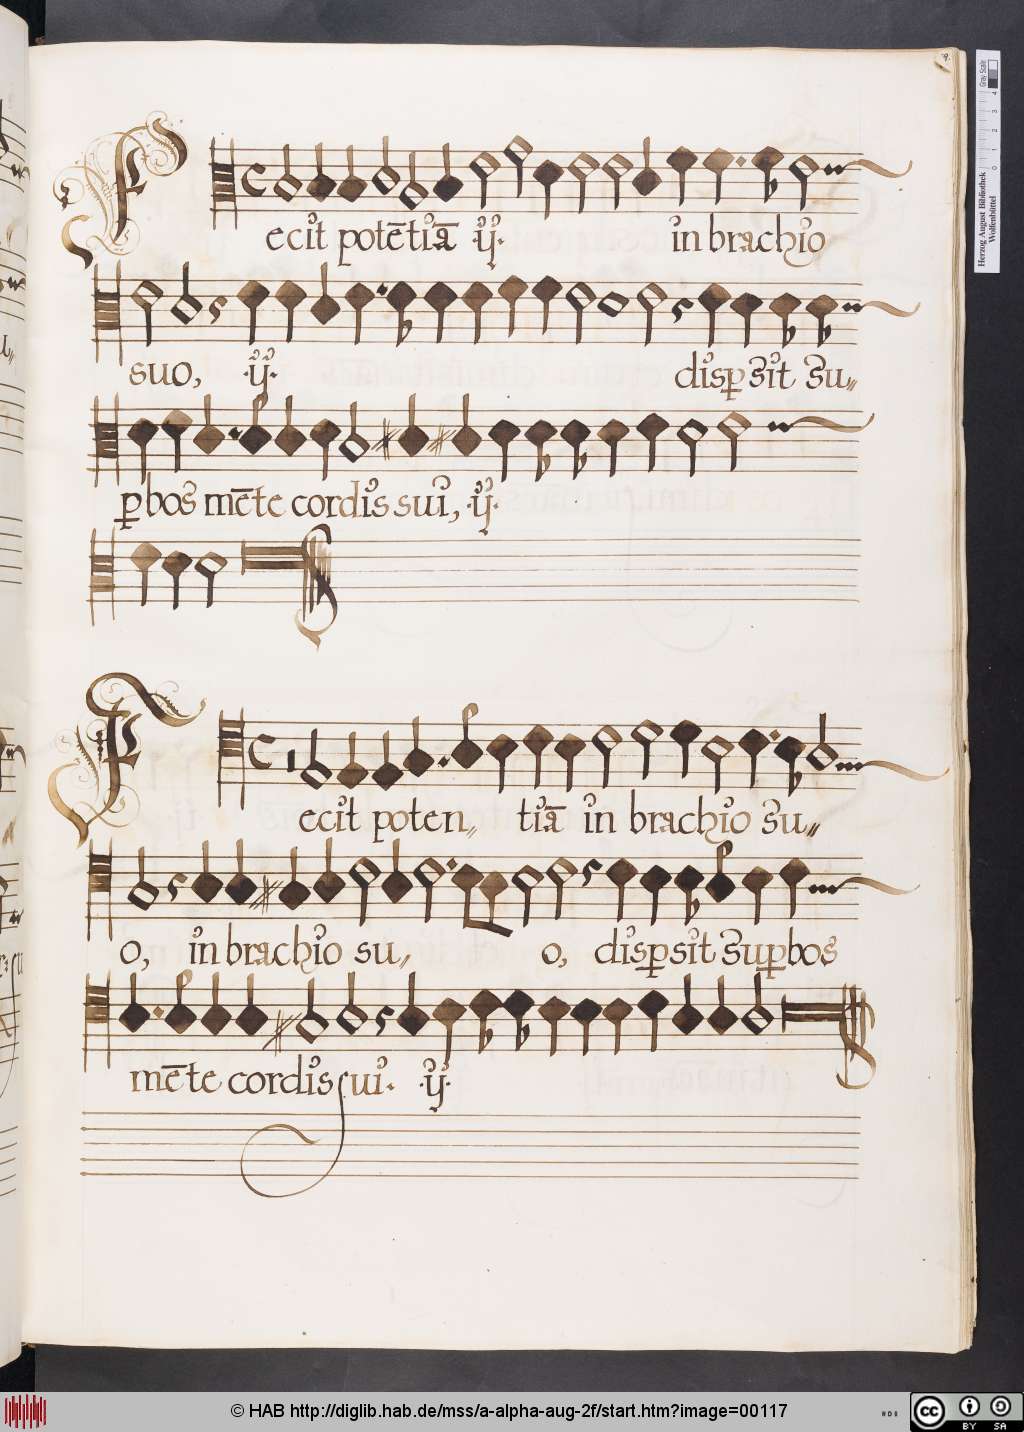 Fecit potētiā ij. in brachio
suo, .ij. disp̱sit Su„
p̱bos mēte cordis sui, .ij.
Fecit poten„ tiā in brachio Su„
o, in brachio su„ o, disp̱sit Sup̱bos
mēte cordis sui. .ij.
Herzog August Bibliothek
Wolfenbüttel
Gray Scale
0 1 2 3 4
© HAB http://diglib.hab.de/mss/a-alpha-aug-2f/start.htm?image=00117
HAB
cc BY SA